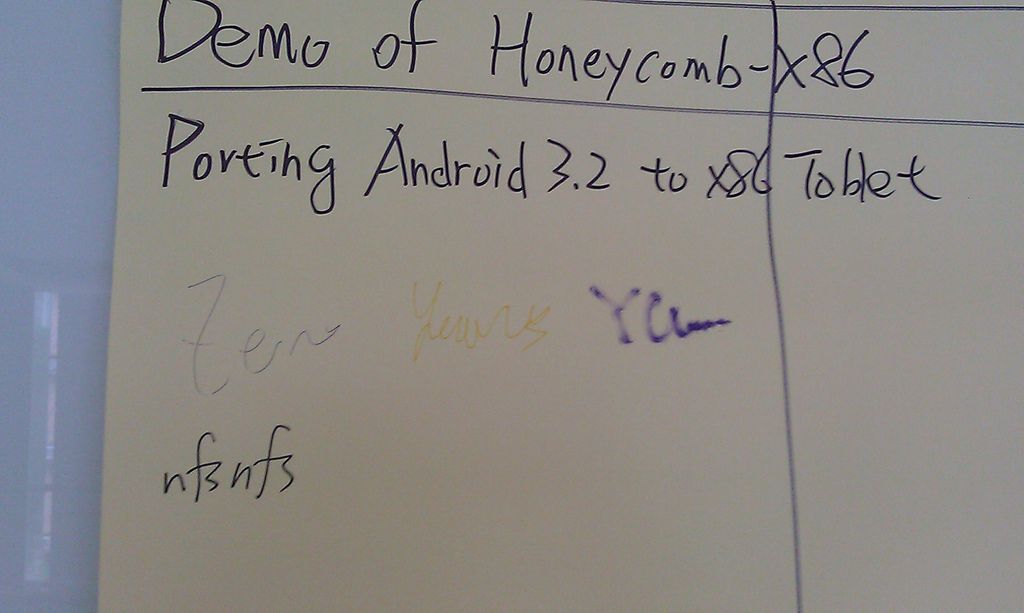 Demo of Honeycomb-x86
Porting Android 3.2 to x86 Tablet
nfsnfs